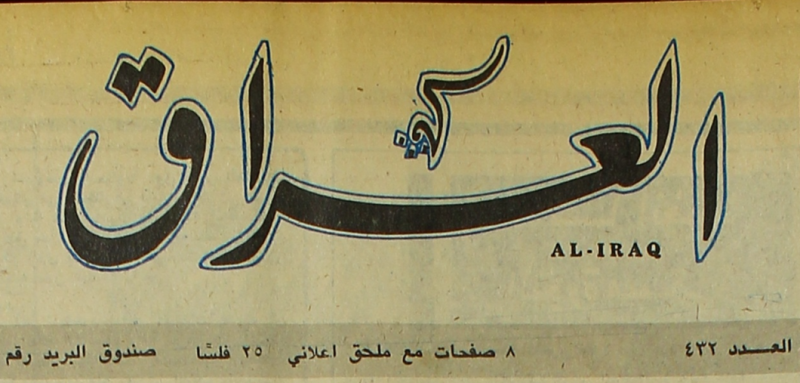 العراق
AL-IRAQ
العـــدد ٤٣٢ ٨ صفحات مع ملحق اعلاني ٢٥ فلسًا صندوق البريد رقم